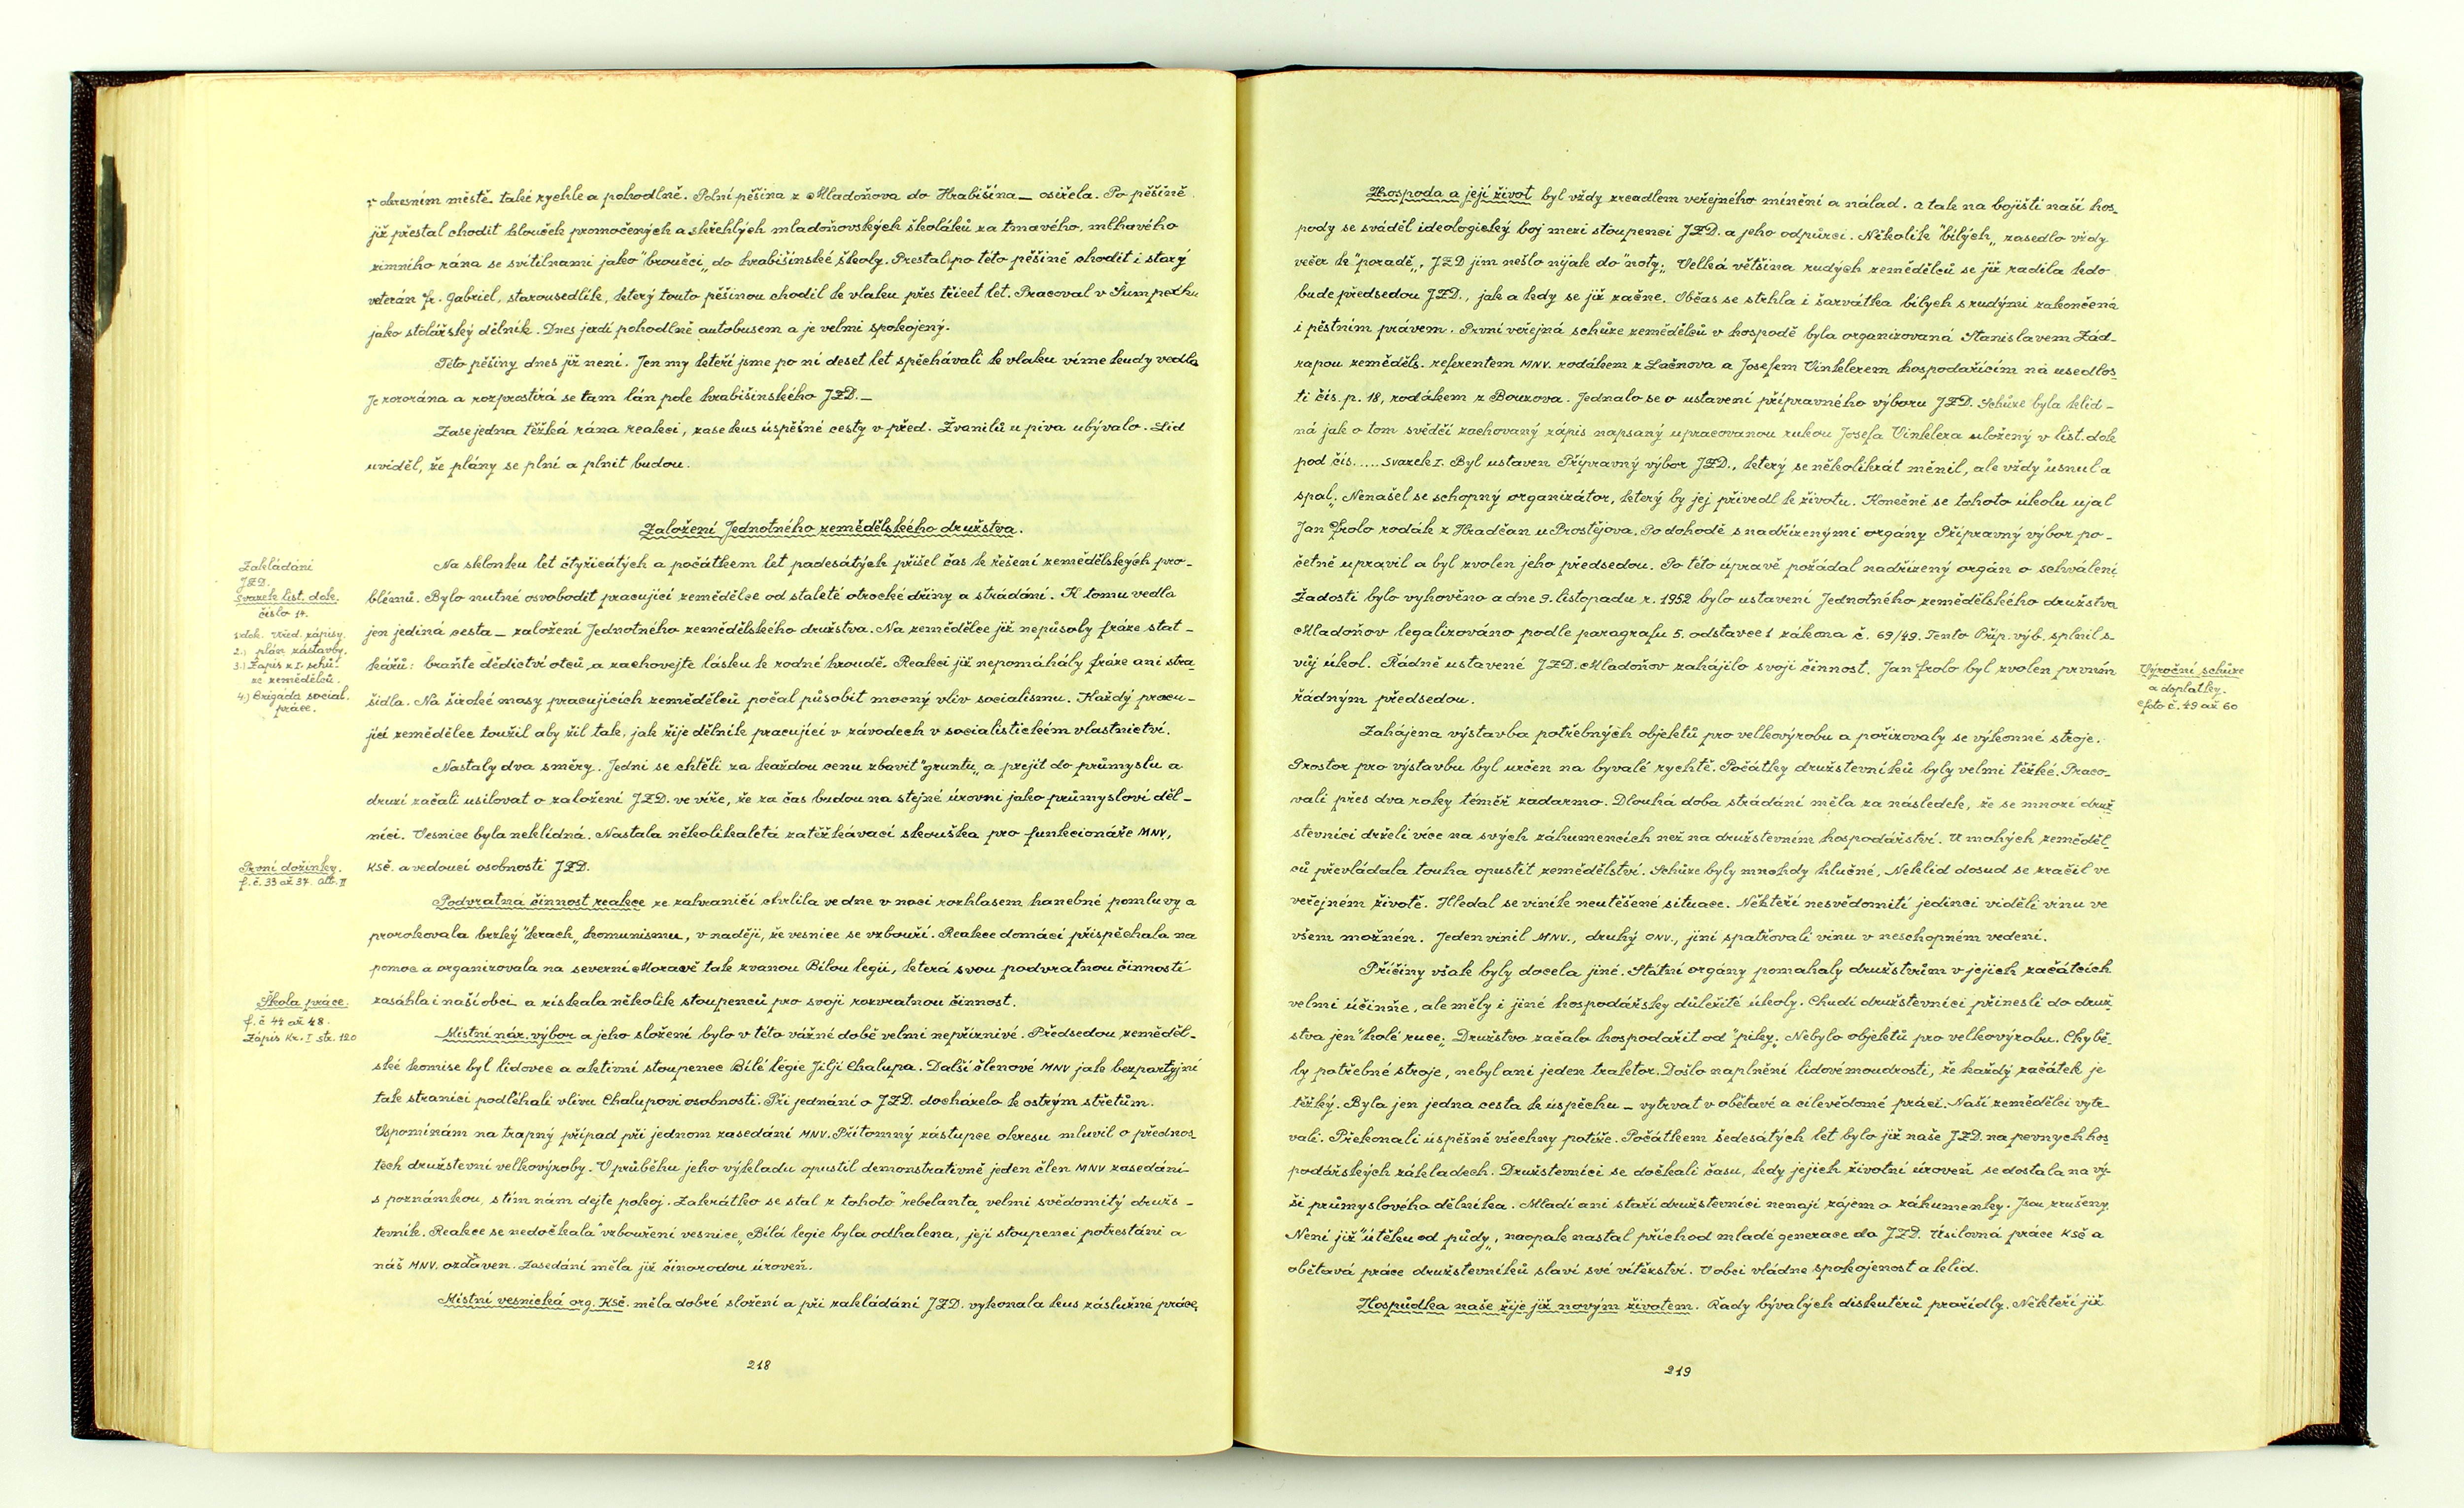 v okresním městě také rychle a pohodlně. Polní pěšina z Mladoňova do Hrabišína — osiřela. Po pěšině
již přestal chodit hlouček promočených a skřehlých mladoňovských školáků za tmavého, mlhavého
zimního rána se svítilnami jako "broučci„ do hrabišínské školy. Prestal po této pěšině chodit i starý
veterán Fr. Gabriel, starousedlík, který touto pěšinou chodil k vlaku přes třicet let. Pracoval v Šumperku
jako stolářský dělník. Dnes jezdí pohodlně autobusem a je velmi spokojený.
Této pěšiny dnes již není. Jen my kteří jsme po ní deset let spěchávali k vlaku víme kudy vedla
Je rozorána a rozprostírá se tam lán pole hrabišínského JZD. —
Zase jedna těžká rána reakci, zase kus úspěšné cesty v před. Žvanilů u piva ubývalo. Lid
uviděl, že plány se plní a plnit budou.
Založení Jednotného zemědělského družstva.
Zakládání
JZD.
Svazek list. dok.
číslo 14.
2.) plán zástavby.
3.) Zápis z I. schů-
ze zemědělců.
4.) Brigáda social.
práce.
Na sklonku let čtyřicátých a počátkem let padesátých přišel čas k řešení zemědělských pro-
blémů. Bylo nutné osvobodit pracující zemědělce od staleté otrocké dřiny a strádání. K tomu vedla
jen jediná cesta — založení Jednotného zemědělského družstva. Na zemědělce již nepůsoly fráze stat-
kářů: braňte dědictví otců a zachovejte lásku k rodné hroudě. Reakci již nepomáhály fráze ani stra-
šidla. Na široké masy pracujících zemědělců počal působit mocný vliv socialismu. Každý pracu-
jící zemědělec toužil aby žil tak, jak žije dělník pracující v závodech v socialistickém vlastnictví.
Nastaly dva směry. Jedni se chtěli za každou cenu zbavit "gruntu„ a prejít do průmyslu a
druzí začali usilovat o založení JZD. ve víře, že za čas budou na stejné úrovni jako průmysloví děl-
níci. Vesnice byla neklidná. Nastala několikaletá zatěžkávací skouška pro funkcionáře MNV,
KSČ. a vedoucí osobnosti JZD.
První dožinky.
f. č. 33 až 37. Alb. II
Podvratná činnost reakce ze zahraničí chrlila ve dne v noci rozhlasem hanebné pomluvy a
prorokovala brzký "krach„ komunismu, v naději, že vesnice se vzbouří. Reakce domácí přispěchala na
pomoc a organizovala na severní Moravě tak zvanou Bílou legii, která svou podvratnou činností
zasáhla i naší obci a získala několik stoupenců pro svoji rozvratnou činnost.
Škola práce.
f. č 44 až 48.
Zápis Kr. I str. 120
Místní nár. výbor a jeho složení bylo v této vážné době velmi nepříznivé. Předsedou zeměděl-
ské komise byl lidovec a aktivní stoupenec Bílé légie Jiljí Chalupa. Další členové MNV jak bezpartyjní
tak straníci podléhali vlivu Chalupovi osobnosti. Při jednání o JZD. docházelo k ostrým střetům.
Vspomínám na trapný případ při jednom zasedání MNV. Přítomný zástupce okresu mluvil o přednos-
tech družstevní velkovýroby. V průběhu jeho výkladu opustil demonstrativně jeden člen MNV zasedání
s poznámkou, s tím nám dejte pokoj. Zakrátko se stal z tohoto "rebelanta„ velmi svědomitý družs-
tevník. Reakce se nedočkala "vzbouření vesnice„ Bílá legie byla odhalena, její stoupenci potrestáni a
náš MNV. ozdaven. Zasedání měla již činorodou úroveň.
Místní vesnická org. KSČ. měla dobré složení a při zakládání JZD. vykonala kus záslužné práce.
218
Hospoda a její život byl vždy zrcadlem veřejného mínění a nálad. a tak na bojišti naší hos-
pody se sváděl ideologický boj mezi stoupenci JZD. a jeho odpůrci. Několik "bílých„ zasedlo vždy
večer k "poradě„. JZD jim nešlo nijak do "noty„. Velká většina rudých zemědělců se již radila kdo
bude předsedou JZD., jak a kdy se již začne. Občas se strhla i šarvátka bílych s rudými zakončená
i pěstním právem. První veřejná schůze zemědělců v hospodě byla organizovaná Stanislavem Zád-
rapou zeměděls. referentem MNV. rodákem z Lačnova a Josefem Vinklerem hospodařícím na usedlos-
ti čís. p. 18, rodákem z Bouzova. Jednalo se o ustavení přípravného výboru JZD. Schůze byla klid-
ná jak o tom svědčí zachovaný zápis napsaný upracovanou rukou Josefa Vinklera uložený v list. dok
pod čís..... svazek I. Byl ustaven Přípravný výbor JZD., který se několikrát měnil, ale vždy "usnul a
spal„. Nenašel se schopný organizátor, který by jej přivedl k životu. Konečně se tohoto úkolu ujal
Jan Frolo rodák z Hradčan u Prostějova. Po dohodě s nadřízenými orgány Přípravný výbor po-
četně upravil a byl zvolen jeho předsedou. Po této úpravě požádal nadřízený orgán o schválení
Žádosti bylo vyhověno a dne 9. listopadu r. 1952 bylo ustavení Jednotného zemědělského družstva
Mladoňov legalizováno podle paragrafu 5. odstavce 1 zákona č. 69/49. Tento Příp. výb. splnil s-
vůj úkol. Řádně ustavené JZD. Mladoňov zahájilo svoji činnost. Jan Frolo byl zvolen prvním
řádným předsedou.
Výroční schůze
a doplatky.
foto č. 49 až 60
Zahájena výstavba potřebných objektů pro velkovýrobu a pořizovaly se výkonné stroje.
Prostor pro výstavbu byl určen na byvalé rychtě. Počátky družstevníků byly velmi těžké. Praco-
vali přes dva roky téměř zadarmo. Dlouhá doba strádání měla za následek, že se mnozí druž-
stevníci drželi více na svých záhumencích než na družstevním hospodářství. U mohých zeměděl-
ců převládala touha opustit zemědělství. Schůze byly mnohdy hlučné. Neklid dosud se zračil ve
veřejném životě. Hledal se viník neutěšené situace. Někteří nesvědomití jedinci viděli vinu ve
všem možném. Jeden vinil MNV., druhý ONV., jiní spatřovali vinu v neschopném vedení.
Příčiny však byly docela jiné. Státní orgány pomahaly družstvům v jejich začátcích
velmi účinňe, ale měly i jiné hospodářsky důležité úkoly. Chudí družstevníci přinesli do druž-
stva jen "holé ruce„. Družstvo začalo hospodařit od "piky„. Nebylo objektů pro velkovýrobu. Chybě-
ly potřebné stroje, nebyl ani jeden traktor. Došlo naplnění lidové moudrosti, že každý začátek je
těžký. Byla jen jedna cesta k úspěchu — vytrvat v obětavé a cílevědomé práci. Naší zemědělci vytr-
vali. Překonali úspěšně všechny potíže. Počátkem šedesátých let bylo již naše JZD. na pevnych hos-
podářských základech. Družstevníci se dočkali času, kdy jejich životní úroveň se dostala na vý-
ši průmyslového dělníka. Mladí ani staří družstevníci nenají zájem o záhumenky. Jsou zrušeny.
Není již "útěku od půdy„, naopak nastal příchod mladé generace do JZD. Úsilovná práce KSČ a
obětavá práce družstevníků slaví své vítěkství. V obci vládne spokojenost a klid.
Hospůdka naše žije již novým životem. Řady bývalých diskutérů prořídly. Někteří již
219